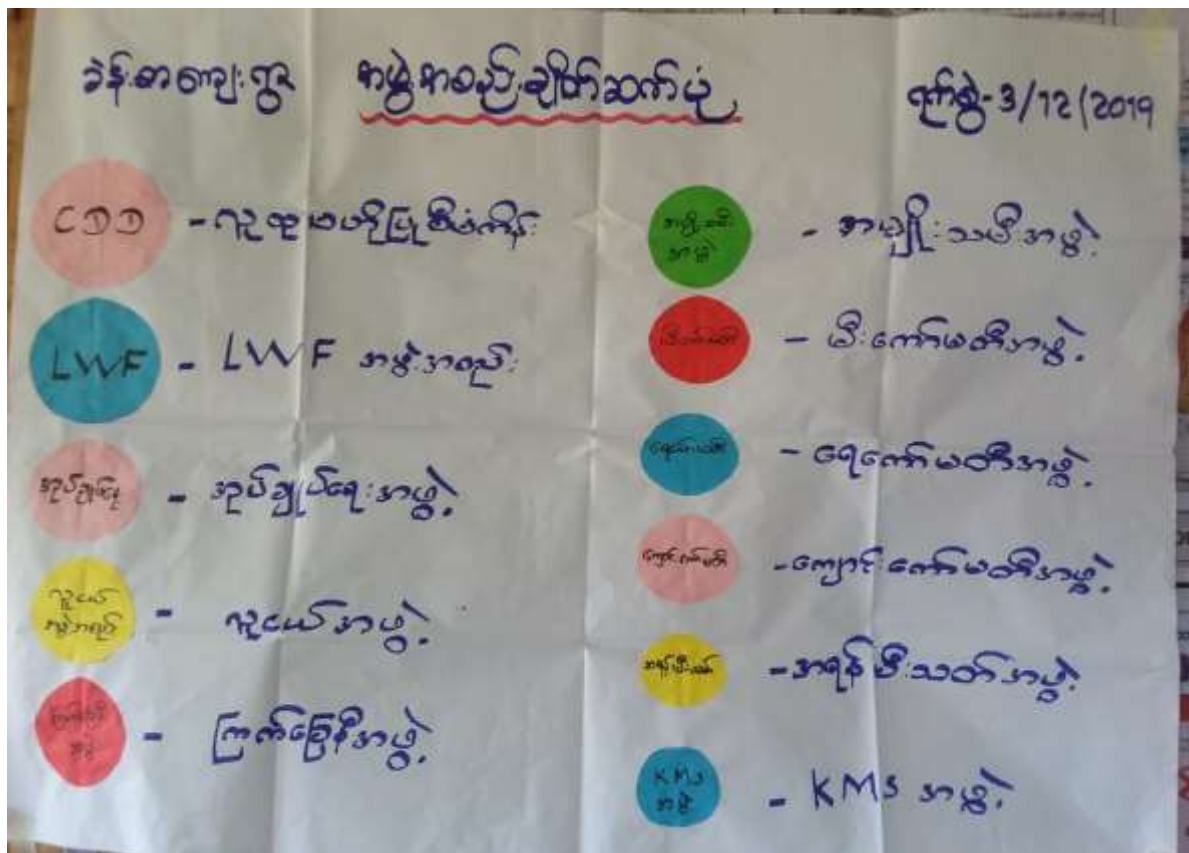 ခဲန်းစာကျေးရွာ အဖွဲ့အစည်းချိတ်ဆက်ပုံ ရက်စွဲ-3/12/2019
CDD - လူထုဗဟိုပြုစီမံကိန်း
LWF - LWF အဖွဲ့အစည်း
အုပ်ချုပ်ရေး - အုပ်ချုပ်ရေးအဖွဲ့
လူငယ်
အဖွဲ့အစည်း
- လူငယ်အဖွဲ့
ကြက်ခြေနီ
အဖွဲ့
- ကြက်ခြေနီအဖွဲ့
အမျိုးသမီး
အဖွဲ့
- အမျိုးသမီးအဖွဲ့
မီးကော်မတီ - မီးကော်မတီအဖွဲ့
ရေကော်မတီ - ရေကော်မတီအဖွဲ့
ကျောင်းကော်မတီ - ကျောင်းကော်မတီအဖွဲ့
အရန်မီးသတ် - အရန်မီးသတ်အဖွဲ့
KMS
အဖွဲ့
- KMS အဖွဲ့